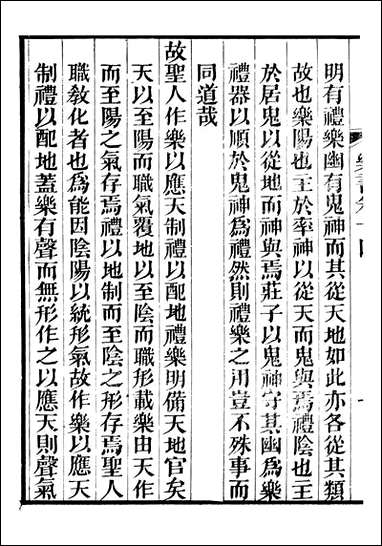 明有禮樂幽有鬼神而其從天地如此亦各從其類
故也樂陽也主於率神以從天而鬼與焉禮陰也主
於居鬼以從地而神與焉莊子以鬼神守其幽爲樂
禮器以順於鬼神爲禮然則禮樂之用豈不殊事而
同道哉
故聖人作樂以應天制禮以配地禮樂明備天地官矣
天以至陽而職氣覆地以至陰而職形載樂由天作
而至陽之氣存焉禮以地制而至陰之形存焉聖人
職敎化者也爲能因陰陽以統形氣故作樂以應天
制禮以配地蓋樂有聲而無形作之以應天則聲氣